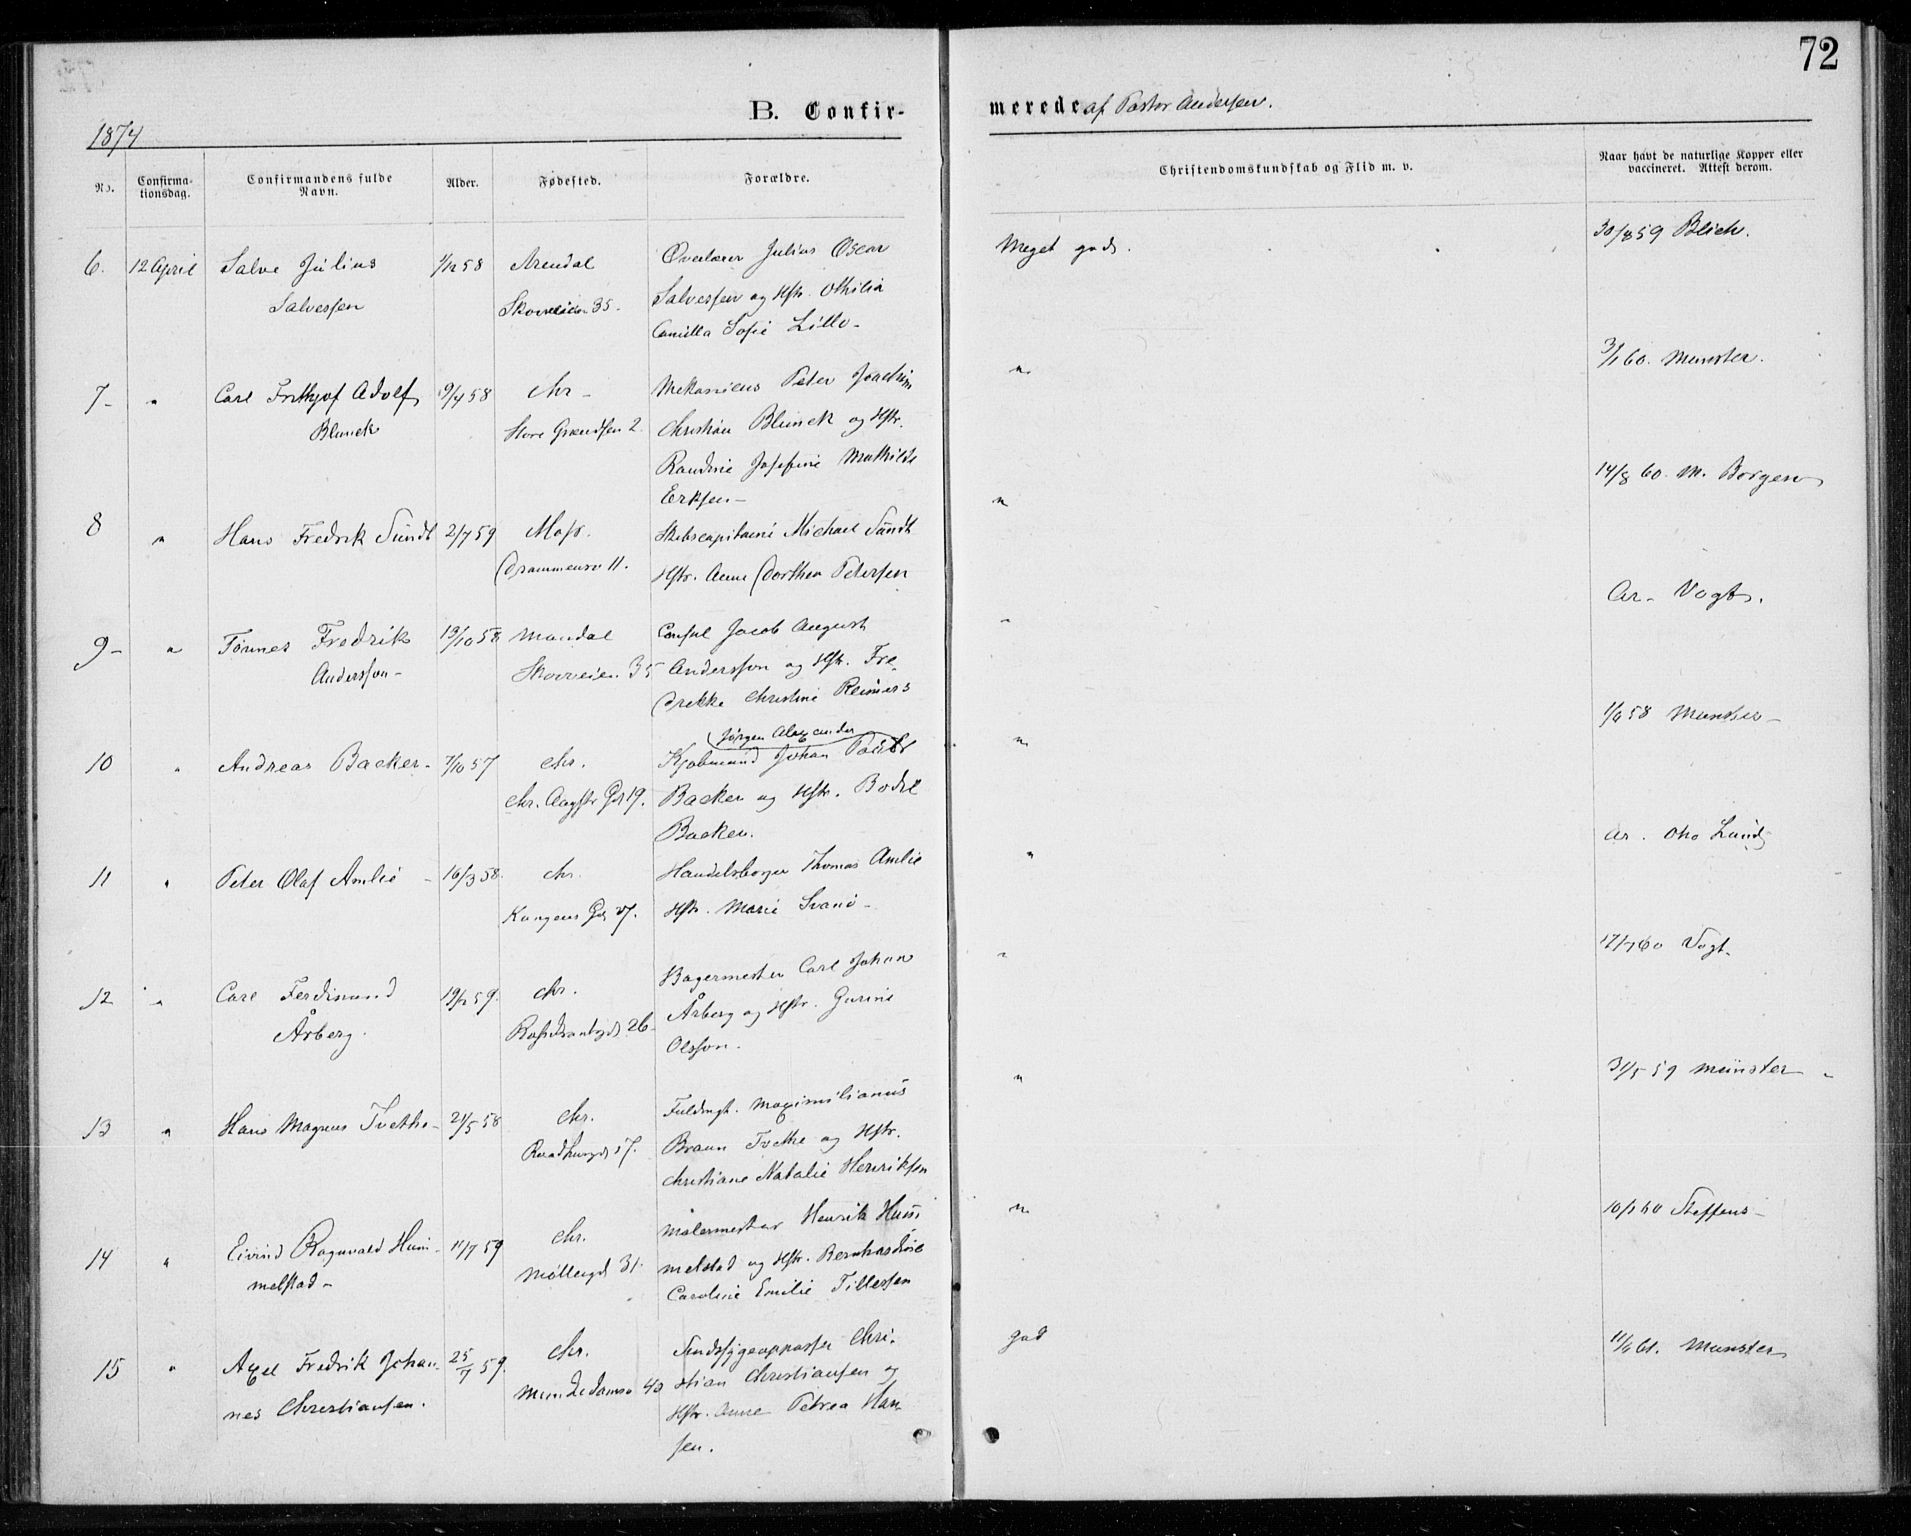 72
B. Confirmerede af Pastor Andersen.
1874
No.
Confirmationsdag.
Confirmandens fulde Navn.
Alder.
Fødested.
Forældre.
Christendomskundskab og Flid m. v.
Naar havt de naturlige Kopper eller vaccineret. Attest derom.
6. 12 April Salve Julius 1/12 58 Arendal Overlærer Julius Oscar Meget godt. 30/8 59 Blich.
Salvessen Skovveien 35. Salvessen og Hstr. Othilia
Camilla Sofie Lillo-
7- " Carl Frithjof Adolf 19/4 58 Chr- Mekanicus Peter Joachim " 3/1 60. Munster.
Blunck Store Grændsen 2. Christian Blunck og Hstr.
Randine Josefine Mathilde
Eriksen-
8 " Hans Fredrik Sundt 2/7 59 Moss. Skibscapitaine Michael Sundt " 14/8 60. M. Borgen
Drammensv 11. Hstr. Anne Dorthea Petersen
9- " Tønnes Fredrik 13/10 58 Mandal Consul Jacob August " Ar- Vogt.
Andersson- Skovveien 35 Andersson og Hstr. Fre-
drikke Christine Reimers
Jørgen Alexander
10 " Andreas Backer- 7/10 57 Chr. Kjøbmand Johan " 1/9 58 Munster-
Chr. Augstr Gd 19. Backer og Hstr. Bodil
Backer.
11 " Peter Olaf Amlie- 16/3 58. Chr. Handelsborger Thomas Amlie " ar. Otto Lund
Kongens Gd 27. Hstr. Marie Svanø-
12 " Carl Ferdinand 19/2 59. Chr. Bagermester Carl Johan " 17/7 60 Vogt.
Årberg. 26- Årberg og Hstr. Gurine
Olsson.
13 " Hans Magnus Tvethe- 21/5 58 Chr. Fuldmgt. Maximilianus " 31/5 59 Münster
Raadhusgd 17. Braun Tvethe og Hstr.
Christiane Natalie Henriksen
14 " Eivind Ragnvald Hum- 11/7 59 Chr. Malermester Henrik Hum " 10/1 60 Steffens-
melstad- Møllergd 31. melstad og Hstr. Bernhardine
Caroline Emilie Tillessen
15 " Axel Fredrik Johan- 25/7 59. Chr. Sindssygeopasser Chri- god 11/9 61. Munster
nes Christiansen. Munkedamsv 40 stian Christiansen og
Hstr. Anne Petrea Han-
sen.